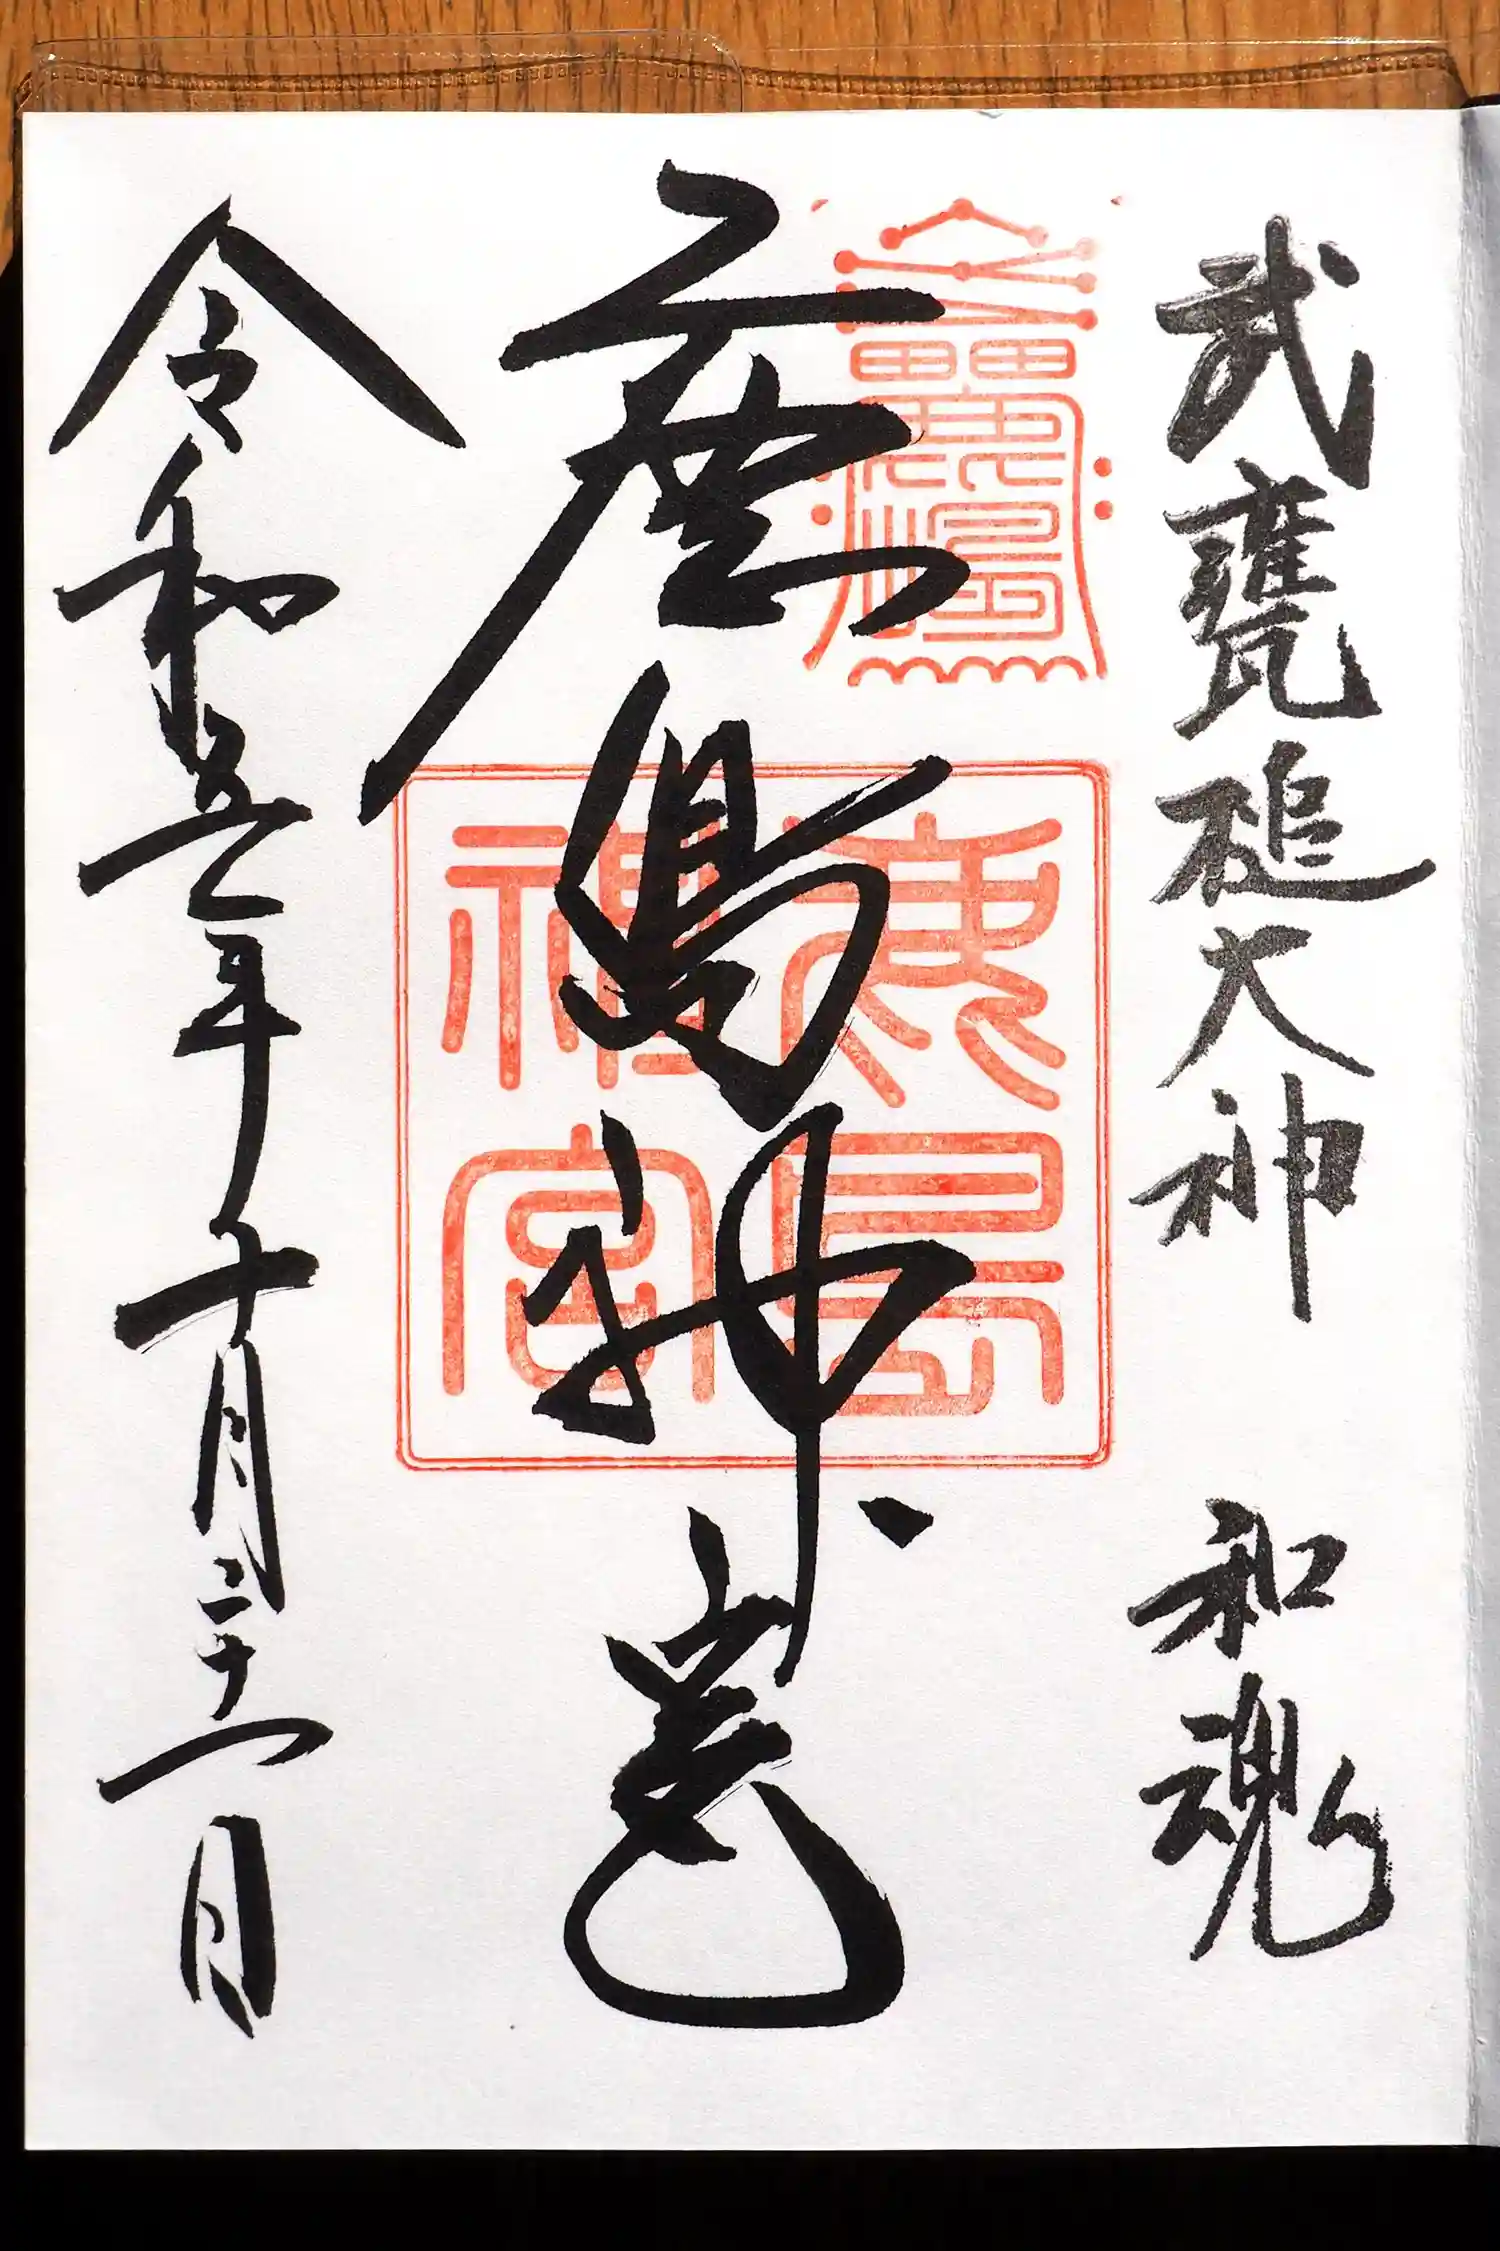 武甕槌大神 和魂
鹿島神宮
鹿島神宮
令和五年十月二十一日